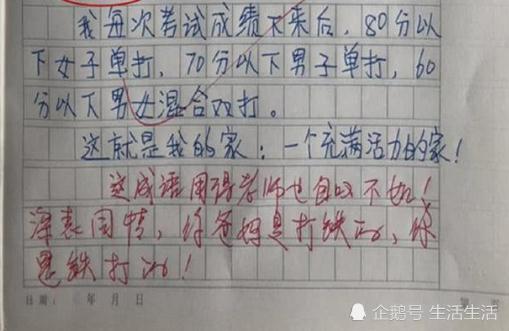 我每次考试成绩下来后，80分以
下女子单打，70分以下男子单打，60
分以下男女混合双打。
这就是我的家：一个充满活力的家！
这成语用得老师也自叹不如！
深表同情，你爸妈是打铁的，你
是铁打的！
日期： 年 月 日
企鹅号 生活生活